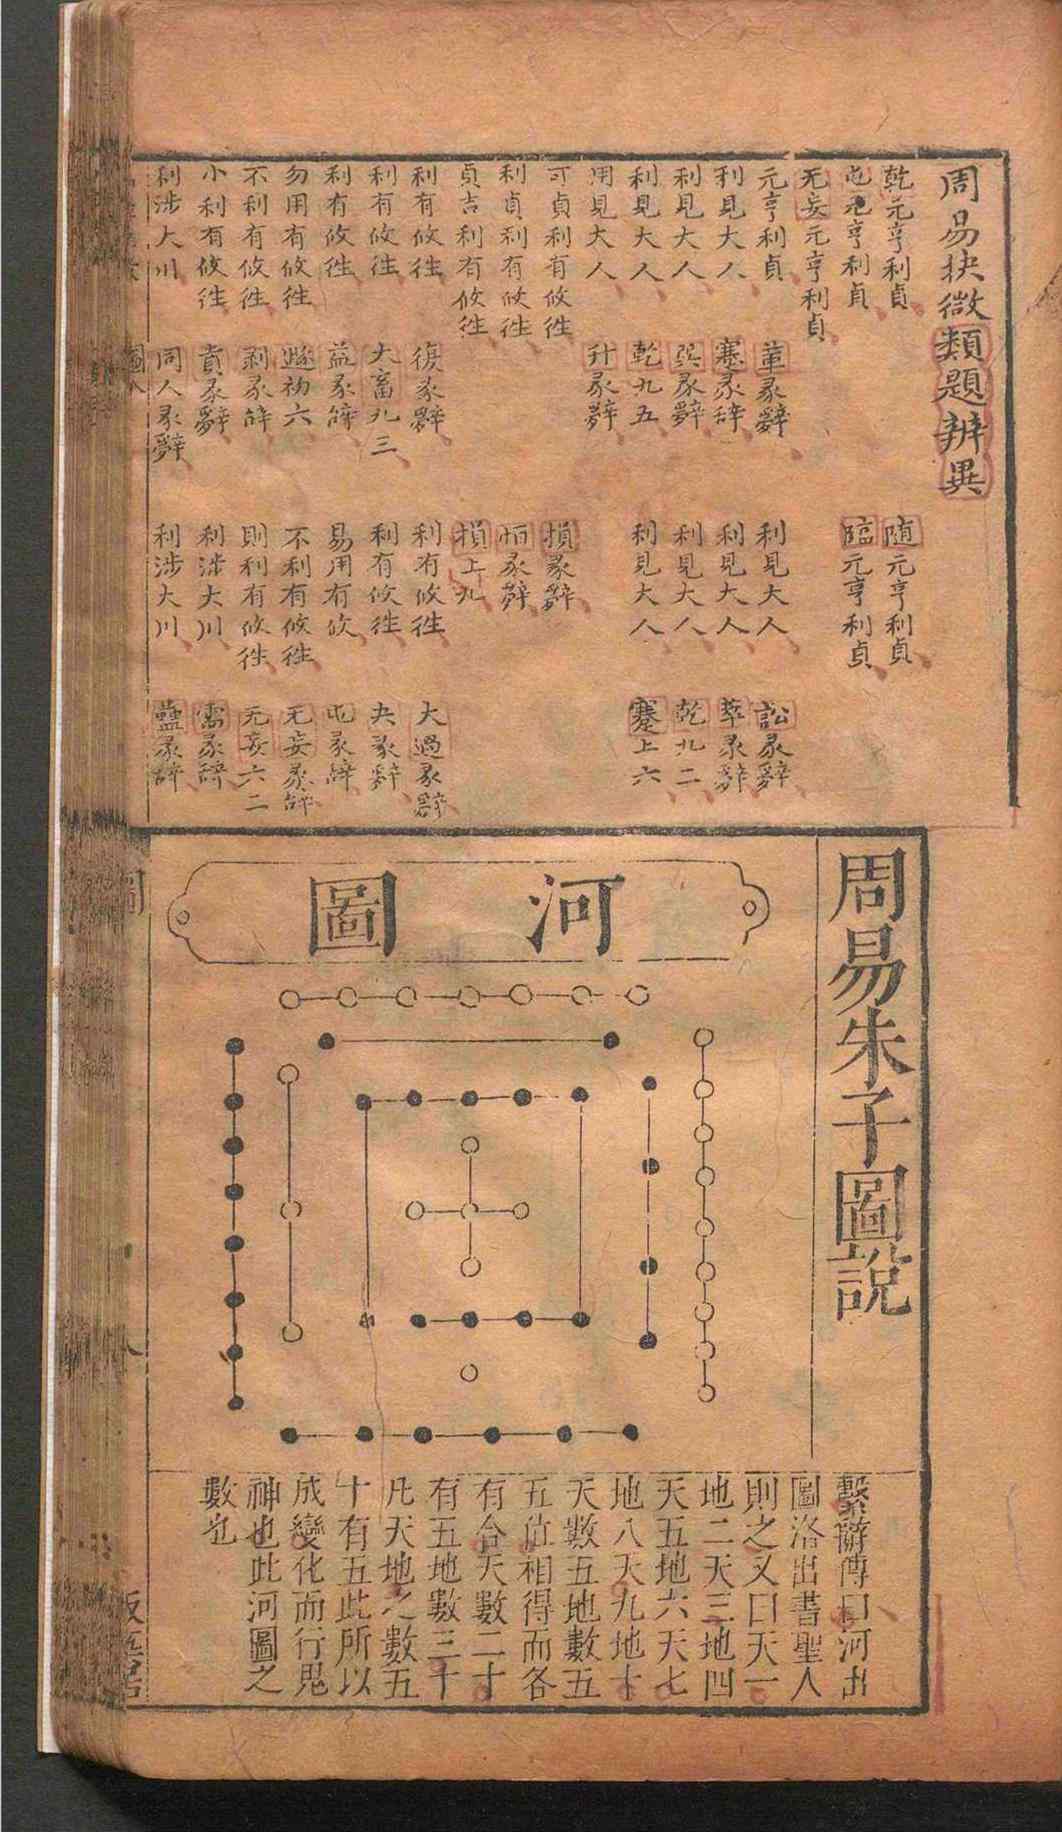 周易抉微類題辨異
乾元亨利貞 随元亨利貞
屯元亨利貞 臨元亨利貞
无妄元亨利貞
元亨利貞 革彖辭 利見大人 訟彖辭
利見大人 蹇彖辞 利見大人 萃彖辭
利見大人 巽彖辭 利見大人 乾九二
利見大人 乾九五 利見大人 蹇上六
用見大人 升彖辭
可貞利有攸徃 損彖辭
利貞利有攸徃 恒彖辭
貞吉利有攸徃 損上九
利有攸徃 復彖辭 利有攸徃 大過彖辭
利有攸徃 大畜九三 利有攸徃 夬彖辭
利有攸徃 益彖辭 易用有攸 屯彖辭
勿用有攸徃 遯初六 不利有攸徃 无妄彖辞
不利有攸徃 剥彖辞 則利有攸徃 无妄六二
小利有攸徃 賁彖辭 利涉大川 需彖辞
利涉大川 同人彖辭 利涉大川 蠱彖辞
周易朱子圖說
河圖
繫辭傳曰河出
圖洛出書聖人
則之又曰天一
地二天三地四
天五地六天七
地八天九地十
天數五地數五
五位相得而各
有合天數二十
有五地數三十
凡天地之數五
十有五此所以
成變化而行鬼
神也此河圖之
數也